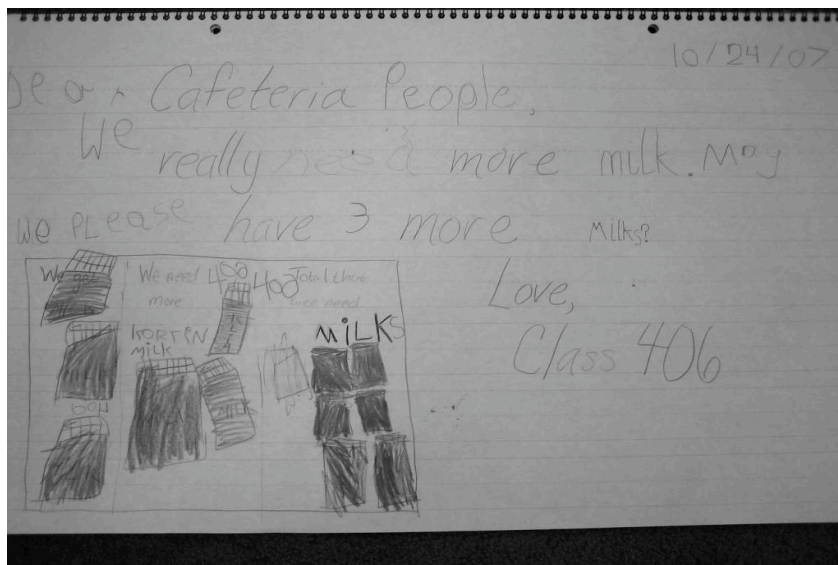 10/24/07
Dear Cafeteria People,
We really need more milk. May
we PLease have 3 more Milks?
Love,
Class 406
We got
We need
more
KORTIN
MiLK
406
400
Total that
wee need
MiLKS